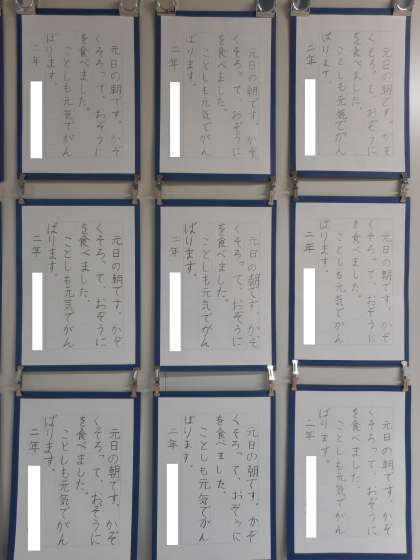 元日の朝です。かぞ
くそろって、おぞうに
を食べました。
ことしも元気でがん
ばります。
二年
元日の朝です。かぞ
くそろって、おぞうに
を食べました。
ことしも元気でがん
ばります。
二年
元日の朝です。かぞ
くそろって、おぞうに
を食べました。
ことしも元気でがん
ばります。
二年
元日の朝です。かぞ
くそろって、おぞうに
を食べました。
ことしも元気でがん
ばります。
二年
元日の朝です。かぞ
くそろって、おぞうに
を食べました。
ことしも元気でがん
ばります。
二年
元日の朝です。かぞ
くそろって、おぞうに
を食べました。
ことしも元気でがん
ばります。
二年
元日の朝です。かぞ
くそろって、おぞうに
を食べました。
ことしも元気でがん
ばります。
二年
元日の朝です。かぞ
くそろって、おぞうに
を食べました。
ことしも元気でがん
ばります。
二年
元日の朝です。かぞ
くそろって、おぞうに
を食べました。
ことしも元気でがん
ばります。
二年